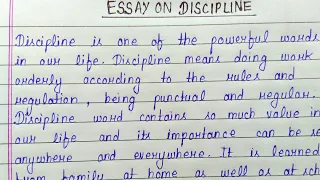 ESSAY ON DISCIPLINE
Discipline is one of the powerful words
in our life. Discipline means doing work
orderly according to the rules and
regulation, being punctual and regular.
Discipline word contains so much value in
our life and its importance can be se
anywhere and everywhere. It is learned
from family at home as well as at sch